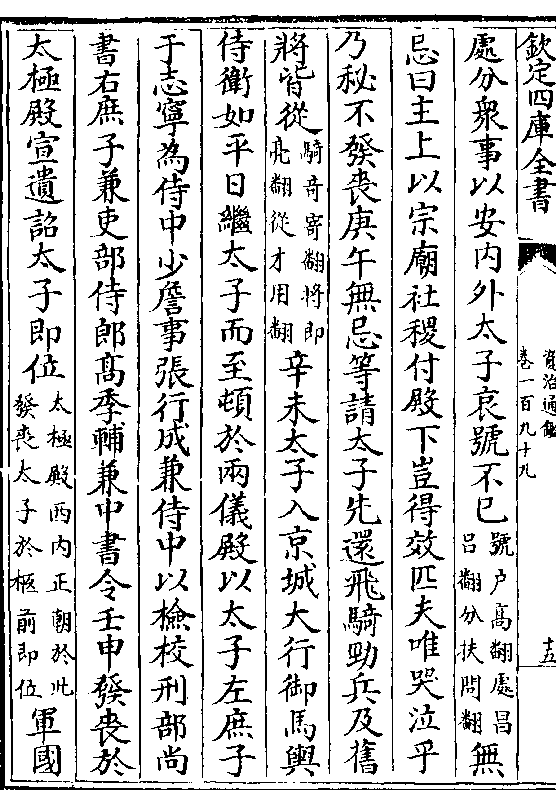 欽定四庫全書
資治通鑑
卷一百九十九
十五
處分衆事以安内外太子哀號不已號户高翻處昌吕翻分扶問翻無
忌曰主上以宗廟社稷付殿下豈得效匹夫唯哭泣乎
乃秘不發喪庚午無忌等請太子先還飛騎勁兵及舊
將皆從騎奇寄翻將即亮翻從才用翻辛未太子入京城大行御馬輿
侍衛如平日繼太子而至頓於兩儀殿以太子左庶子
于志寧為侍中少詹事張行成兼侍中以檢校刑部尚
書右庶子兼吏部侍郎髙季輔兼中書令壬申發喪於
太極殿宣遺詔太子即位太極殿西内正朝於此發喪太子於柩前即位軍國